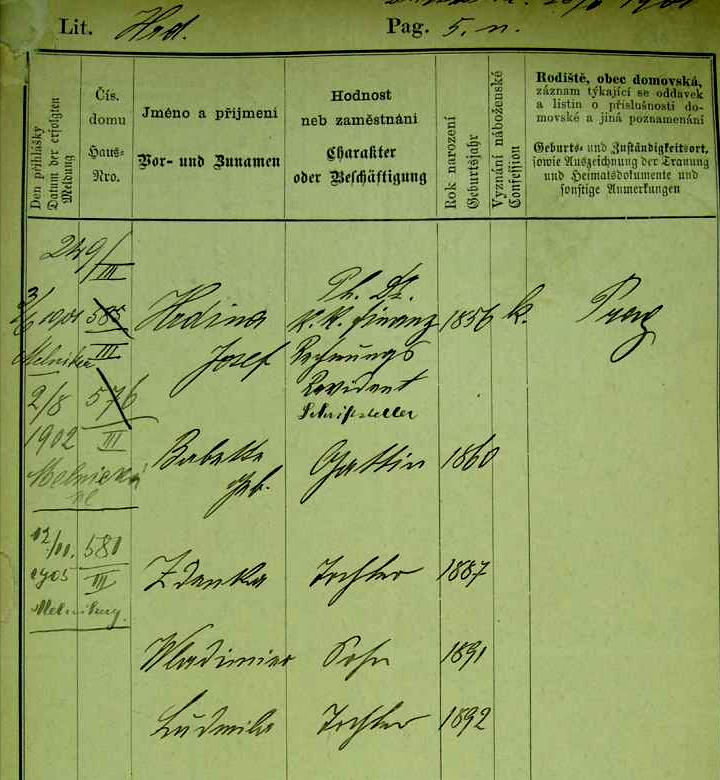 Lit. Hrd. Pag. 5. n.
Den přihlášky
Datum der erfolgten
Meldung
Čís.
domu
Haus-
Nro.
Jméno a příjmení
Vor- und Zunamen
Hodnost
neb zaměstnání
Charakter
oder Beschäftigung
Rok narození
Geburtsjahr
Vyznání náboženské
Confession
Rodiště, obec domovská,
záznam týkající se oddavek
a listin o příslušnosti do-
movské a jiná poznamenání
Geburts- und Zuständigkeitsort,
sowie Aufzeichnung der Trauung
und Heimatsdokumente und
sonstige Anmerkungen
249/III
Ph. Dr.
1901 585 Hrdina k. k. Finanz 1856 k. Prag
III Josef Rechnungs
2/8 576 Revident
Schriftsteller
1902 III Babette Gattin 1860
geb.
12/11. 581
1905 III Zdenka Tochter 1887
Wladimier Sohn 1891
Ludmila Tochter 1892